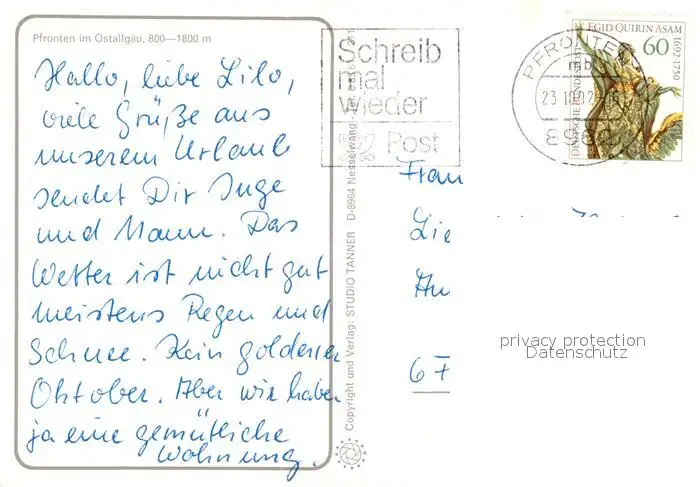 Pfronten im Ostallgäu, 800—1800 m
Hallo, liebe Lilo,
viele Grüße aus
unserem Urlaub
sendet Dir Inge
und Mann. Das
Wetter ist nicht gut
meistens Regen und
Schnee. Kein goldener
Oktober. Aber wir haben
ja eine gemütliche
Wohnung.
Schreib
mal
wieder
Post
Copyright und Verlag: STUDIO TANNER D-8964 Nesselwang
PFRONTEN
23.10.92
896
EGID QUIRIN ASAM
1692-1750
60
DEUTSCHE BUNDESPOST
Frau
Lie
An
67
privacy protection
Datenschutz